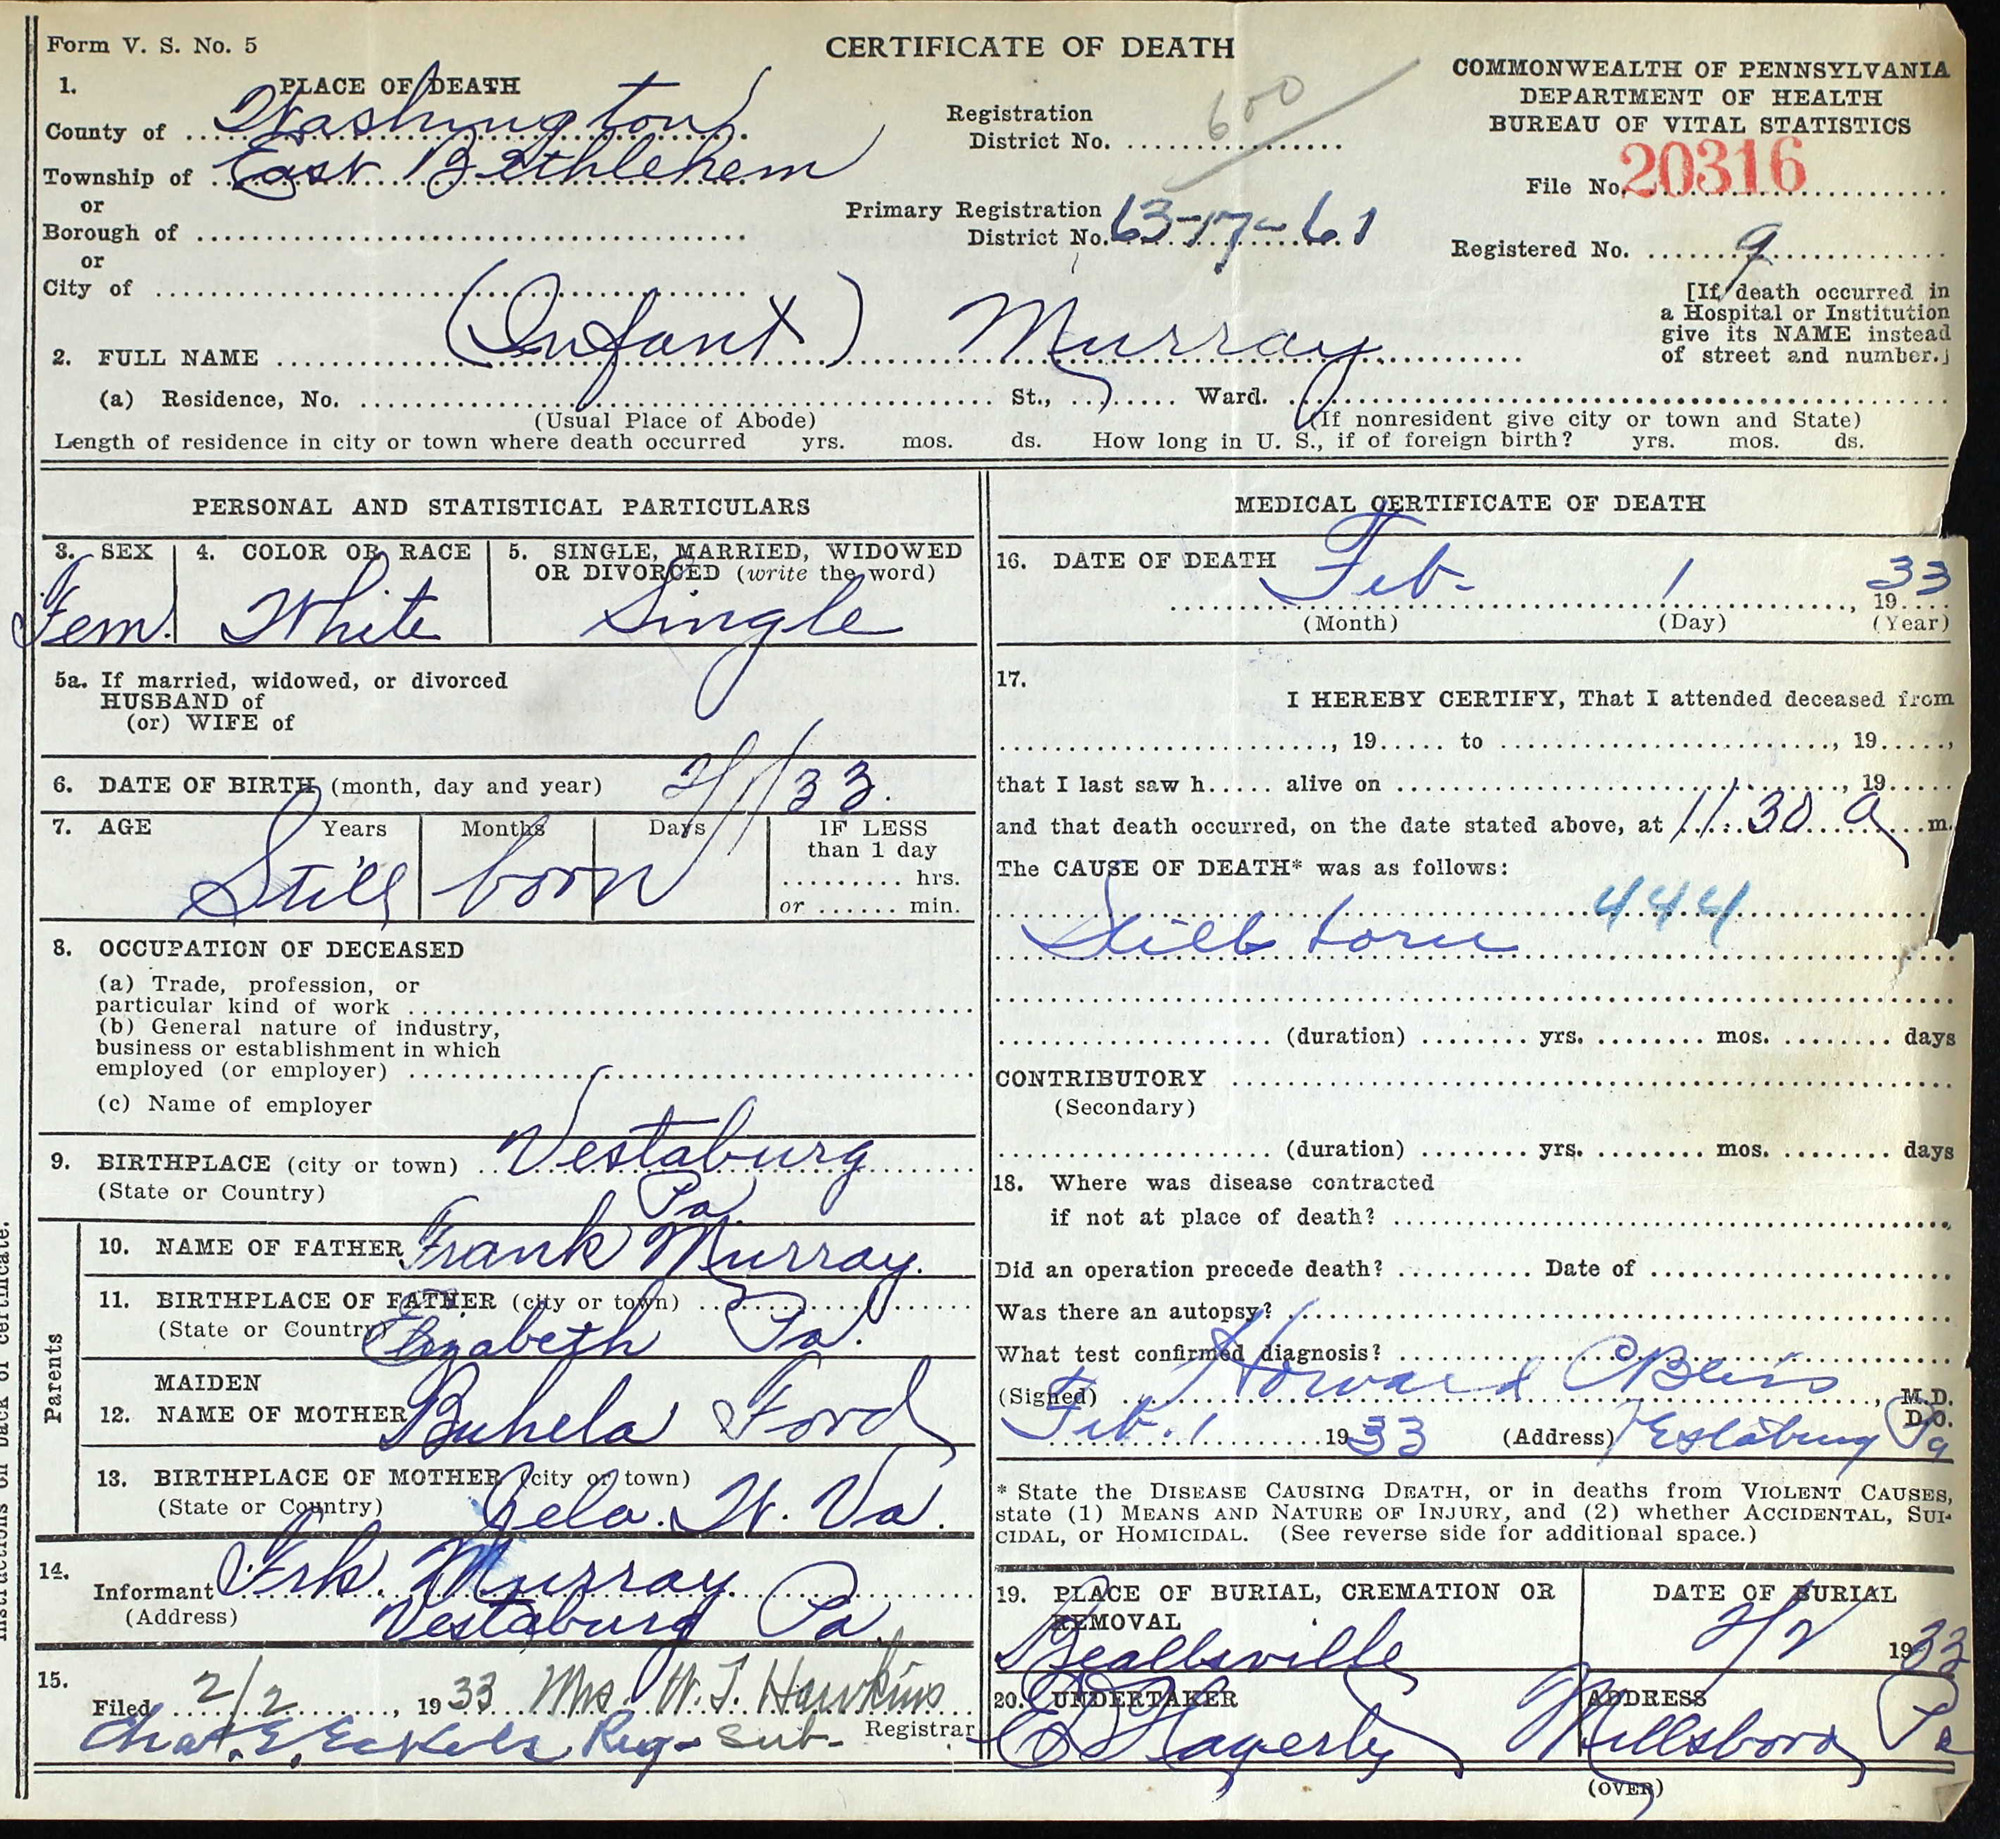 Form V. S. No. 5
CERTIFICATE OF DEATH
COMMONWEALTH OF PENNSYLVANIA
DEPARTMENT OF HEALTH
BUREAU OF VITAL STATISTICS
1. PLACE OF DEATH
County of Washington
Township of East Bethlehem
or
Borough of
or
City of
Registration
District No. 600
Primary Registration
District No. 63-17-61
File No. 20316
Registered No. 9
[If death occurred in
a Hospital or Institution
give its NAME instead
of street and number.]
2. FULL NAME (Infant) Murray
(a) Residence, No. St., Ward.
(Usual Place of Abode) (If nonresident give city or town and State)
Length of residence in city or town where death occurred yrs. mos. ds. How long in U. S., if of foreign birth? yrs. mos. ds.
PERSONAL AND STATISTICAL PARTICULARS
3. SEX
Fem.
4. COLOR OR RACE
White
5. SINGLE, MARRIED, WIDOWED
OR DIVORCED (write the word)
Single
5a. If married, widowed, or divorced
HUSBAND of
(or) WIFE of
6. DATE OF BIRTH (month, day and year) 2/1/33.
7. AGE Years Months Days IF LESS
than 1 day
hrs.
or min.
Still born
8. OCCUPATION OF DECEASED
(a) Trade, profession, or
particular kind of work
(b) General nature of industry,
business or establishment in which
employed (or employer)
(c) Name of employer
9. BIRTHPLACE (city or town) Vestaburg
(State or Country) Pa.
Parents
10. NAME OF FATHER Frank Murray.
11. BIRTHPLACE OF FATHER (city or town)
(State or Country) Elizabeth Pa.
MAIDEN
12. NAME OF MOTHER Buhela Ford
13. BIRTHPLACE OF MOTHER (city or town)
(State or Country) W. Va.
14.
Informant Frk. Murray
(Address) Vestaburg Pa.
15.
Filed 2/2, 1933 Mrs. W. J. Hawkins
Chas. E. Eckels Reg- Sub- Registrar
MEDICAL CERTIFICATE OF DEATH
16. DATE OF DEATH
Feb- 1, 1933
(Month) (Day) (Year)
17.
I HEREBY CERTIFY, That I attended deceased from
, 19 to , 19 ,
that I last saw h alive on , 19
and that death occurred, on the date stated above, at 11:30 a m.
The CAUSE OF DEATH* was as follows:
444
Still born
(duration) yrs. mos. days
CONTRIBUTORY
(Secondary)
(duration) yrs. mos. days
18. Where was disease contracted
if not at place of death?
Did an operation precede death? Date of
Was there an autopsy?
What test confirmed diagnosis?
(Signed) Howard , M.D.
D.O.
Feb. 1 1933 (Address) Vestaburg Pa
* State the DISEASE CAUSING DEATH, or in deaths from VIOLENT CAUSES,
state (1) MEANS AND NATURE OF INJURY, and (2) whether ACCIDENTAL, SUI-
CIDAL, or HOMICIDAL. (See reverse side for additional space.)
19. PLACE OF BURIAL, CREMATION OR
REMOVAL
Beallsville
DATE OF BURIAL
2/2 1933
20. UNDERTAKER
Hagerty
ADDRESS
Millsboro Pa
(OVER)
Instructions on back of certificate.